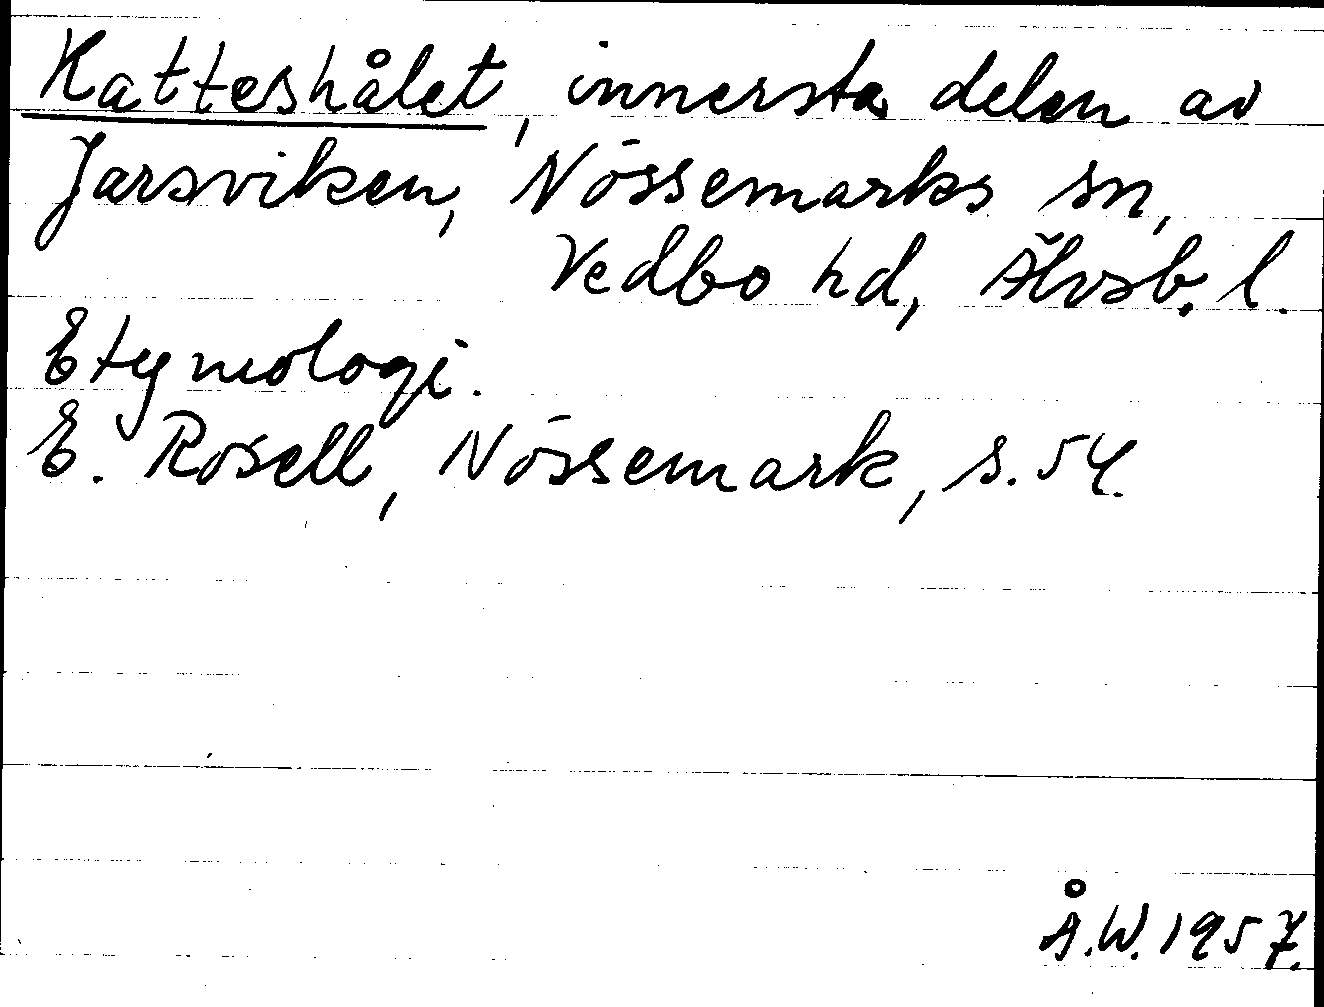 Katteshålet, innersta delen av
Jarsviken, Nössemarks sn,
Vedbo hd, Älvsb. l.
Etymologi.
E. Rosell, Nössemark, s. 54.
Å.W. 1957.